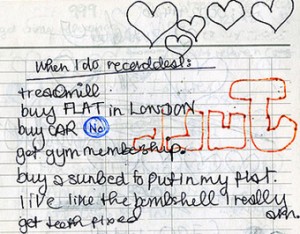 When I do recorddeal:
treadmill
buy FLAT in LONDON
buy CAR No
get gym membership.
buy a sunbed to put in my flat.
live like the bombshell I really am.
get teeth fixed